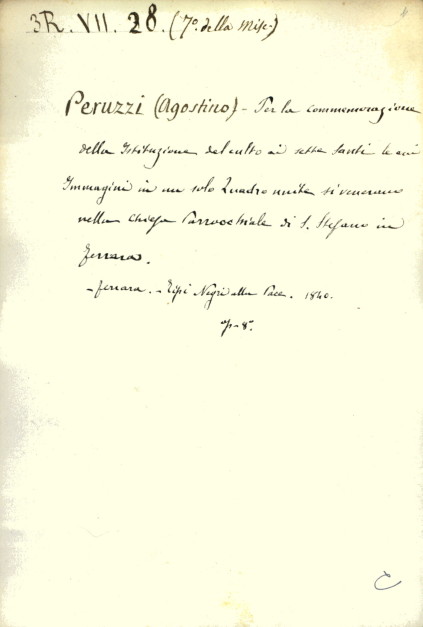 3R. VII. 28. (7º. della Misc.)
Peruzzi (Agostino) - Per la commemorazione
della Istituzione del culto ai sette Santi le cui
Immagini in un solo Quadro unite si venerano
nella Chiesa Parrocchiale di S. Stefano in
Ferrara.
- Ferrara. - Tipi Negri alla Pace. 1840.
op-8º